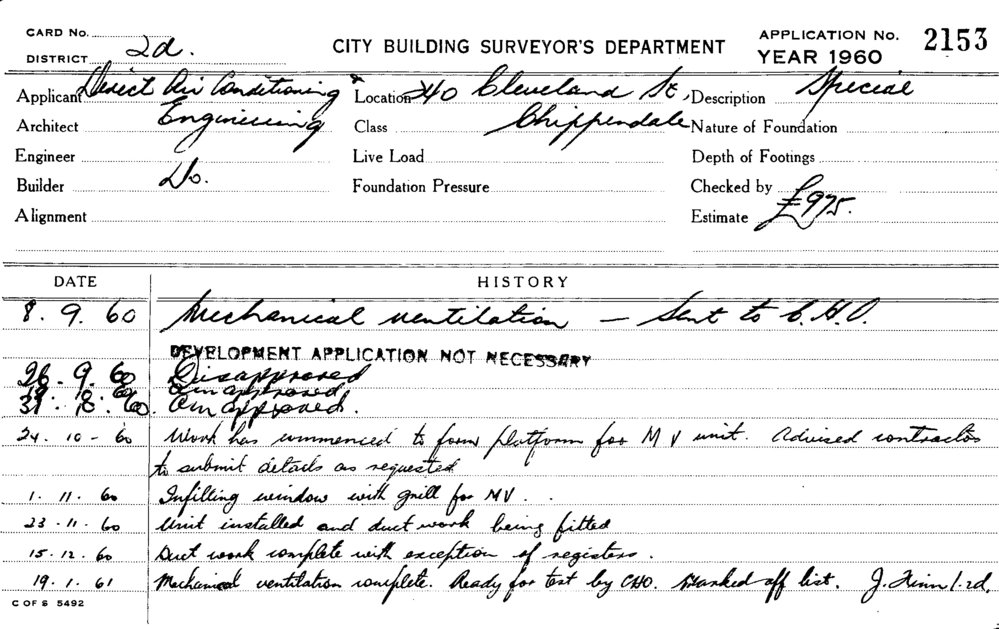 CARD No.
DISTRICT 2d.
CITY BUILDING SURVEYOR'S DEPARTMENT
APPLICATION No. 2153
YEAR 1960
Applicant Direct Air Conditioning Location 240 Cleveland St, Description Special
Architect Engineering Class Chippendale Nature of Foundation
Engineer Live Load Depth of Footings
Builder Do. Foundation Pressure Checked by
Alignment Estimate £975.
DATE HISTORY
8. 9. 60 Mechanical ventilation — Sent to C.H.O.
DEVELOPMENT APPLICATION NOT NECESSARY
26. 9. 60 Disapproved
60 approved
31. 60. approved.
24. 10 - 60 Work has commenced to form platform for M V unit. Advised contractor
to submit details as requested
1. 11. 60 Infilling window with grill for MV.
23. 11. 60 Unit installed and duct work being fitted
15. 12. 60 Duct work complete with exception of registers.
19. 1. 61 Mechanical ventilation complete. Ready for test by CHO. Marked off list. J.
C OF S 5492